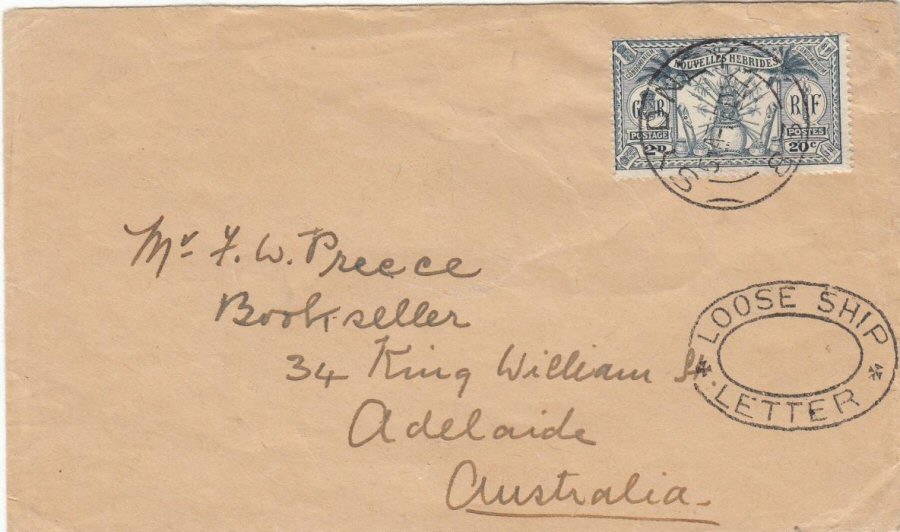 NOUVELLES HEBRIDES
G R
R F
POSTAGE
POSTES
2D
20c
SYDNEY
Mr F. W. Preece
Bookseller
34 King William St
Adelaide
Australia
LOOSE SHIP
LETTER